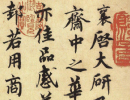 襄啓大研盈
齋中之華
亦佳品感
封若用商